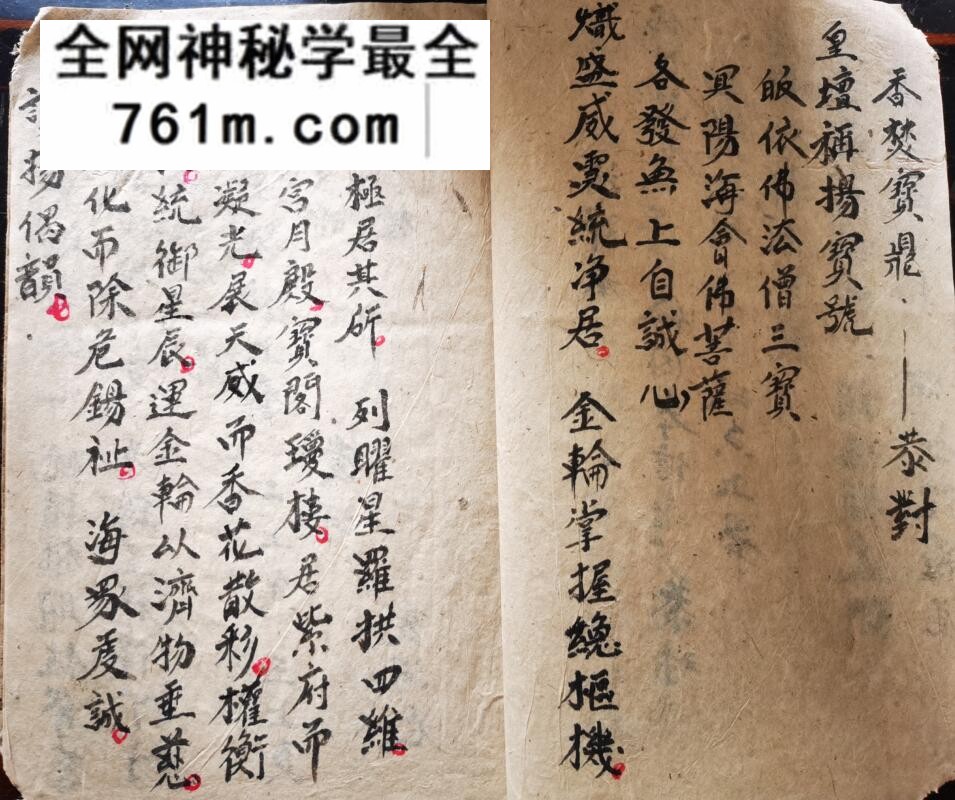 全网神秘学最全
761m.com
香焚寶鼎 — 恭對
皇壇称揚寶號
皈依佛法僧三寶
冥陽海會佛菩薩
各發無上自誠心
熾盛威靈統净居 金輪掌握緫樞機
極居其所 列曜星羅拱四維
宮月殿寶閣瓊楼居紫府而
凝光展天威而香花散彩權衡
統御星辰運金輪以濟物垂慈
化而除危錫祉 海眾虔誠
揚偈韻